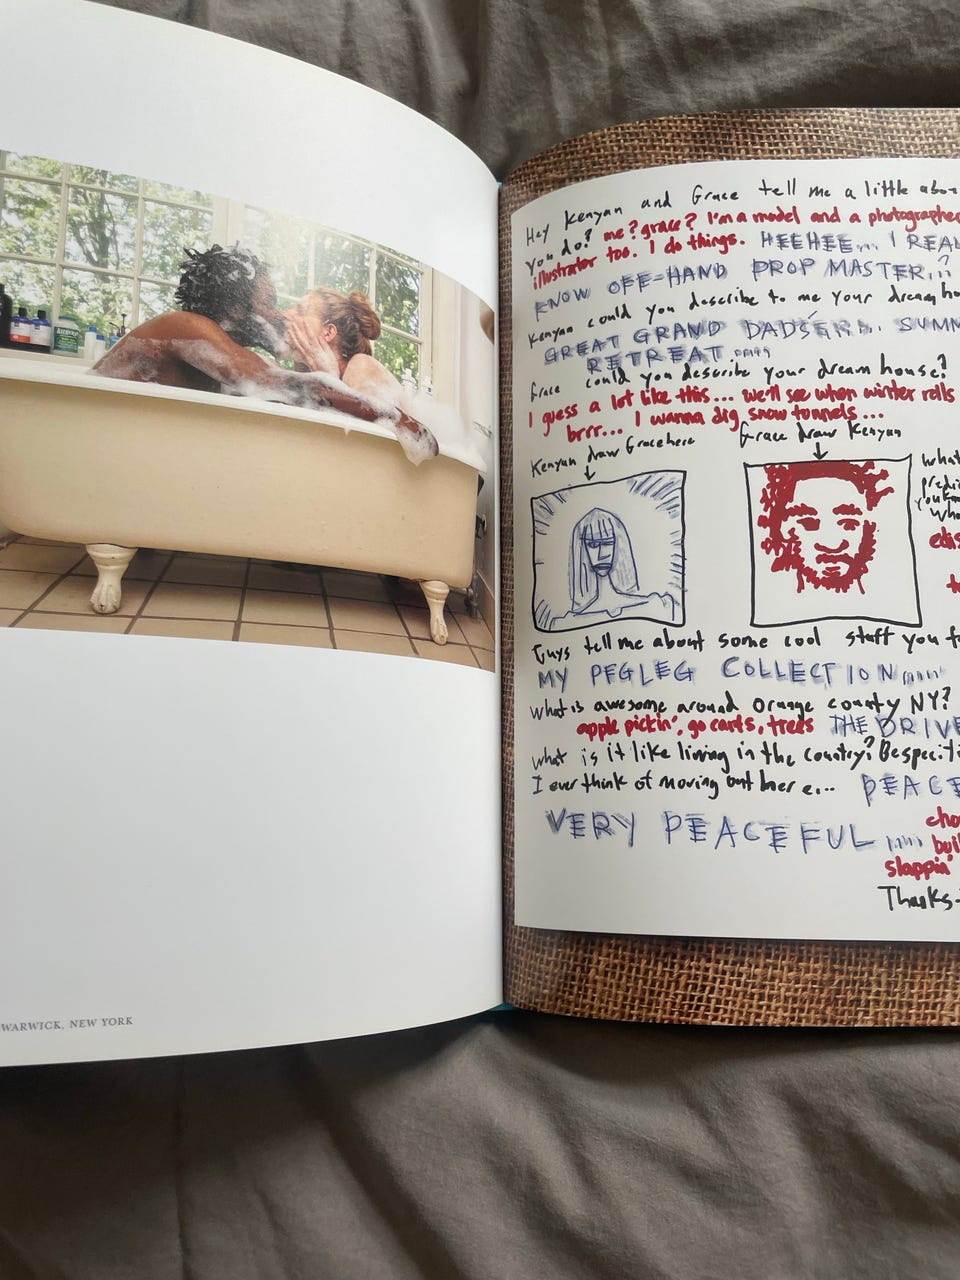 WARWICK, NEW YORK
Hey Kenyan and Grace tell me a little
you do? me? grace? I'm a model and a photographer
illustrator too. I do things. HEEHEE... I
KNOW OFF-HAND PROP MASTER..?
Kenyan could you describe to me your dream
GREAT GRAND DAD'S
RETREAT
Grace could you describe your dream house?
I guess a lot like this... we'll see when winter rolls
brrr... I wanna dig snow tunnels...
Kenyan draw Grace here
Grace draw Kenyan
what
Guys tell me about some cool stuff you
MY PEGLEG COLLECTION
what is awesome around Orange county NY?
apple pickin', go carts, trees THE DRIVE
what is it like living in the country? Be
I ever think of moving out here... PEACE
VERY PEACEFUL
slappin'
Thanks